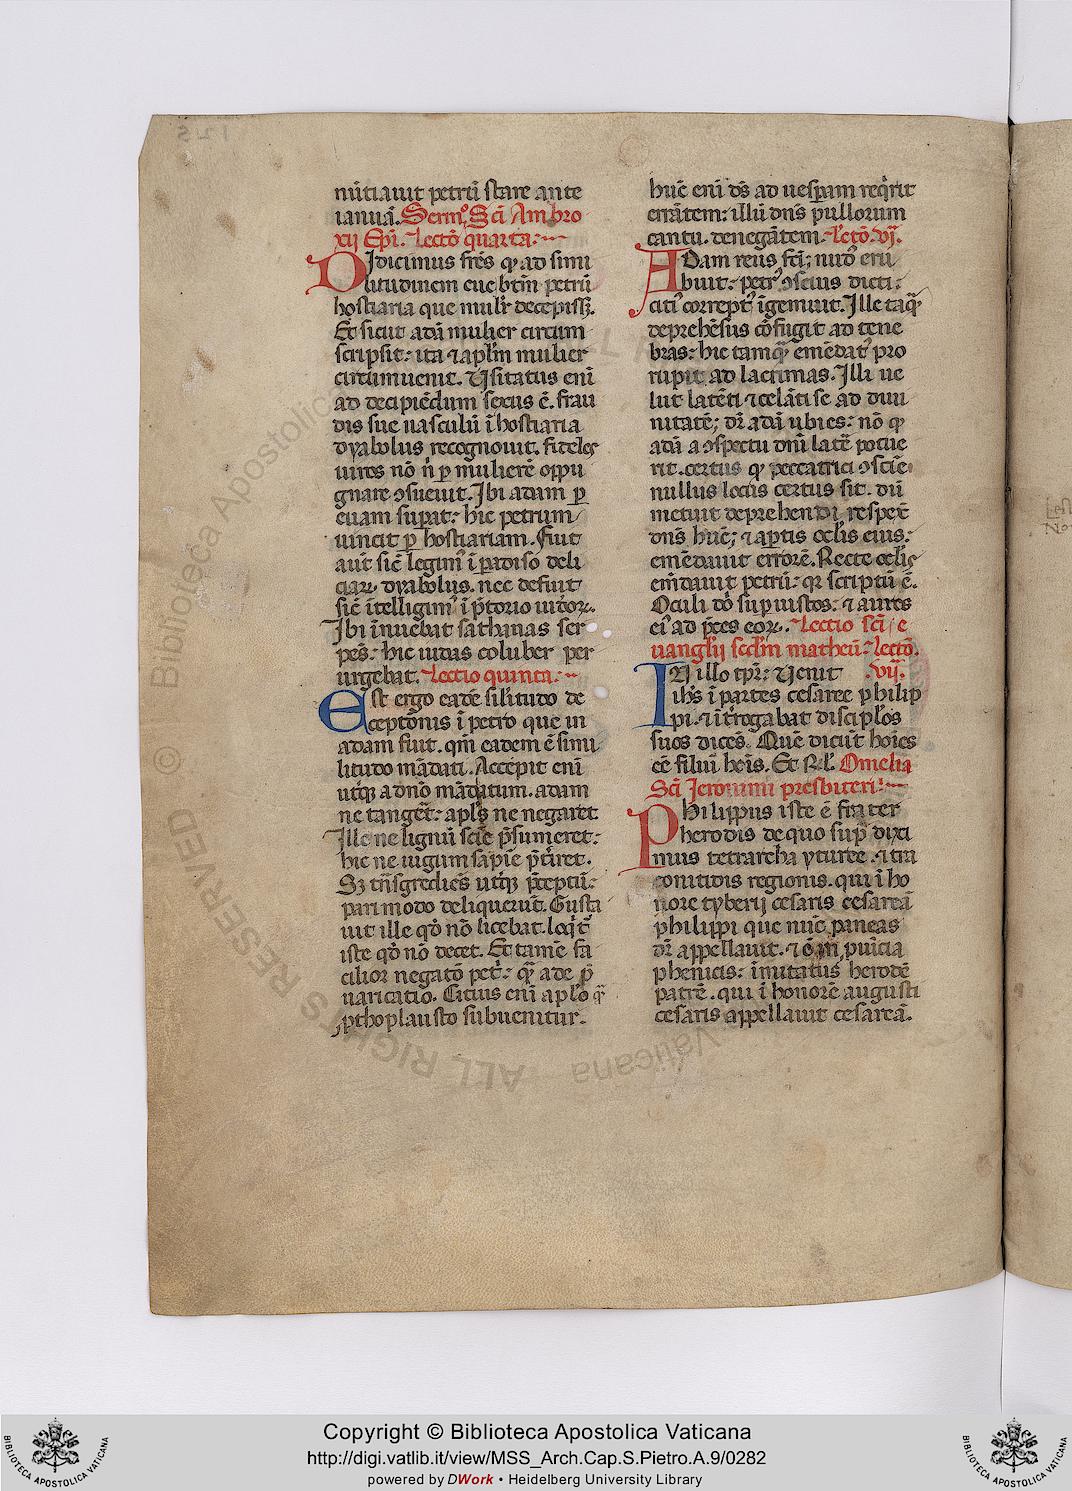 nūtiauit petrū stare ante
ianuā. Sermo Scī Ambro
xij Epī. Lectō quarta.
Didicimus frēs ꝙ ad simi
litudinem eue btm̄ petrū
hostiaria que mulr̄ decepissꝫ.
Et sicut adā mulier circum
scripsit: ita ⁊ aplm̄ mulier
circumuenit. Usitatus enī
ad decipiēdum sexus ē. frau
dis sue uasculū ī hostiaria
dyabolus recognouit. fideles
uiros nō n̄ ꝑ mulierē oppu
gnare ↄsueuit. Ibi adam ꝑ
euam suꝑat: hic petrum
uincit ꝑ hostiariam. fuit
aut̄ sic̄ legimꝰ ī paradiso deli
ciaꝝ dyabolus. nec defuit
sic̄ ītelligimꝰ ī p̄torio iudeoꝝ.
Ibi īnuebat sathanas ser
pēs: hic iudas coluber per
urgebat. Lectio quinta.
Est ergo eadē silitudo de
ceptōnis ī petro que in
adam fuit. qm̄ eadem ē simi
litudo mādati. Accepit enī
utqꝫ a dn̄o mādatum. adam
ne tangeret: apls̄ ne negaret
Ille ne lignū scīe p̄sumeret:
hic ne iugum sapīe p̄tiret.
Sꝫ trāsgrediēs utqꝫ p̄ceptū:
pari modo deliquerūt. Gusta
uit ille qđ nō licebat. loqt̄
iste qđ nō decet. Et tamē fa
cilior negatō petri: q̄ ade p̄
uaricatio. Citius enī aplo q̄
ꝓthoplausto subuenitur.
hūc enī dn̄s ad uesꝑam reqrit
errātem: illū dn̄s pullorum
cantu. denegātem. Lectō. vj.
Adam reus fcī; nudū eru
buit: petrꝰ ↄscius dicti:
citꝰ correptꝰ īgemuit. Ille taq̄
deprehēsus cōfugit ad tene
bras: hic tamq̄ emēdatꝰ pro
rupit ad lacrimas. Illi ue
lut latēti ⁊ celāti se ad diui
nitatē; dr̄ adā ubi es: nō ꝙ
adā a ↄspectu dn̄i latē potue
rit. certus ꝙ peccatrici ↄscie
nullus locus certus sit. dū
metuit deprehendi respexit
dn̄s hūc; ⁊ aꝑtis oclis eius:
emēdauit errorē. Recte oclis
emdauit petrū: qr scriptū ē.
Oculi dn̄i suꝑ iustos: ⁊ aures
eiꝰ ad p̄ces eoꝝ. Lectio scī e
uanglīj scdm̄ matheū. Lectō.
vij.
In illo tpr̄: Uenit
ihs̄ ī partes cesaree philip
pi. ⁊ īterrogabat discipl̄os
suos dicēs. Quē dicūt hoīes
eē filiū hoīs. Et Rl̄. Omelia
Scī Jeronimi presbiteri:
Philippus iste ē frater
herodis de quo suꝑ dixi
mus tetrarcha yturee. ⁊ tra
conitidis regionis. qui ī ho
nore tyberij cesaris cesareā
philippi que nūc paneas
dr̄ appellauit. ⁊ ē ī ꝓuīcia
phenicis: īmitatus herodē
patrē. qui ī honorē augusti
cesaris appellauit cesareā.
Copyright © Biblioteca Apostolica Vaticana
http://digi.vatlib.it/view/MSS_Arch.Cap.S.Pietro.A.9/0282
powered by DWork • Heidelberg University Library